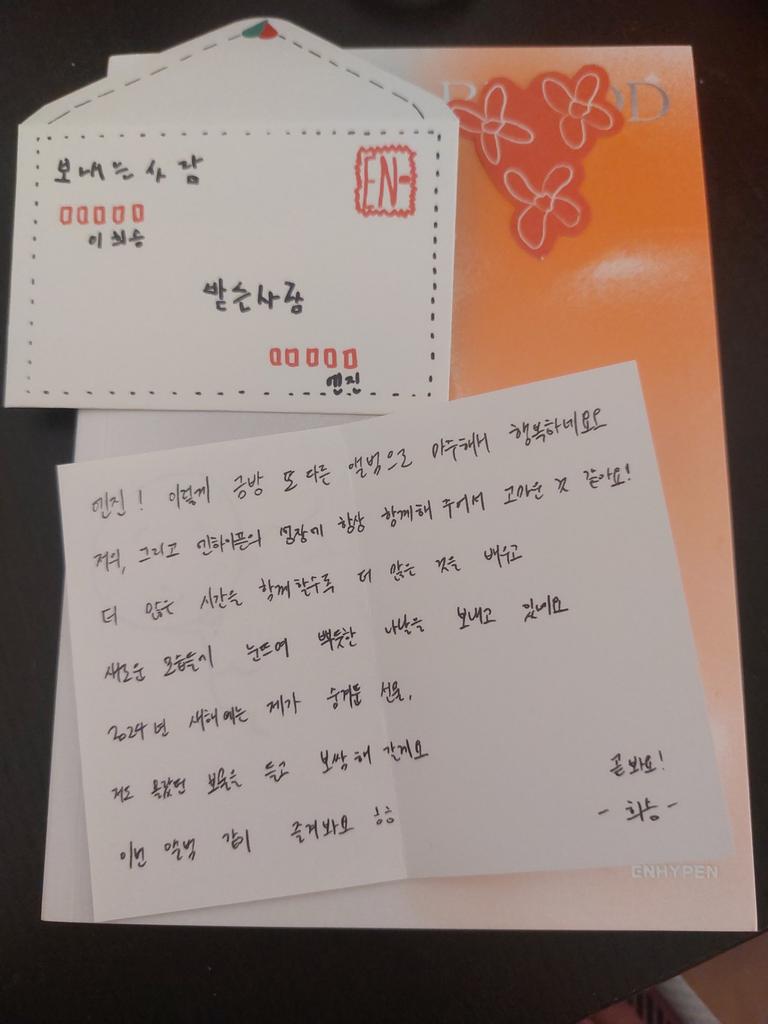 보내는 사람
EN-
이희승
받는사람
엔진
엔진! 이렇게 금방 또 다른 앨범으로 마주해서 행복하네요
저의, 그리고 엔하이픈의 성장에 항상 함께해 주어서 고마운 것 같아요!
더 많은 시간을 함께 할수록 더 많은 것을 배우고
새로운 모습들이 눈뜨여 뿌듯한 나날을 보내고 있네요
2024년 새해에는 제가 숨겨둔 선물,
저도 몰랐던 보물을 들고 보쌈해 갈게요
이번 앨범 같이 즐겨봐요 ㅎㅎ
곧 봐요!
- 희승 -
ENHYPEN